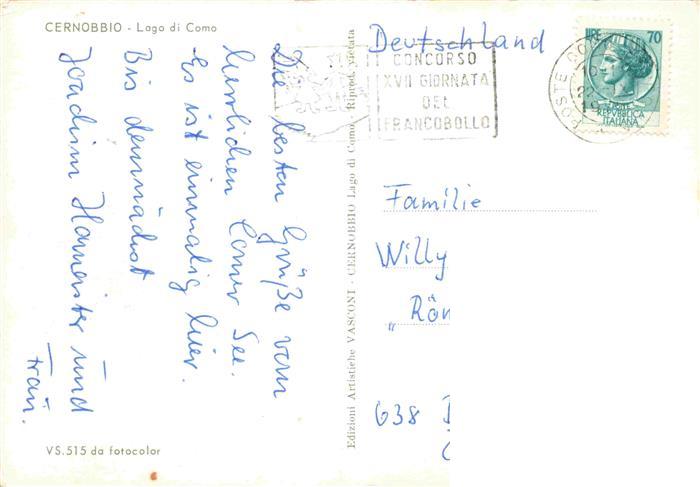 CERNOBBIO - Lago di Como
Die besten Grüße vom
herrlichen Comer See.
Es ist einmalig hier.
Bis demnächst
Joachim Hameister und
Frau.
VS.515 da fotocolor
Edizioni Artistiche VASCONI - CERNOBBIO Lago di Como - Riprod. vietata
Deutschland
CONCORSO
XVII GIORNATA
DEL
FRANCOBOLLO
LIRE 70
POSTE
REPVBBLICA
ITALIANA
POSTE CO
Familie
Willy
„Rön
638